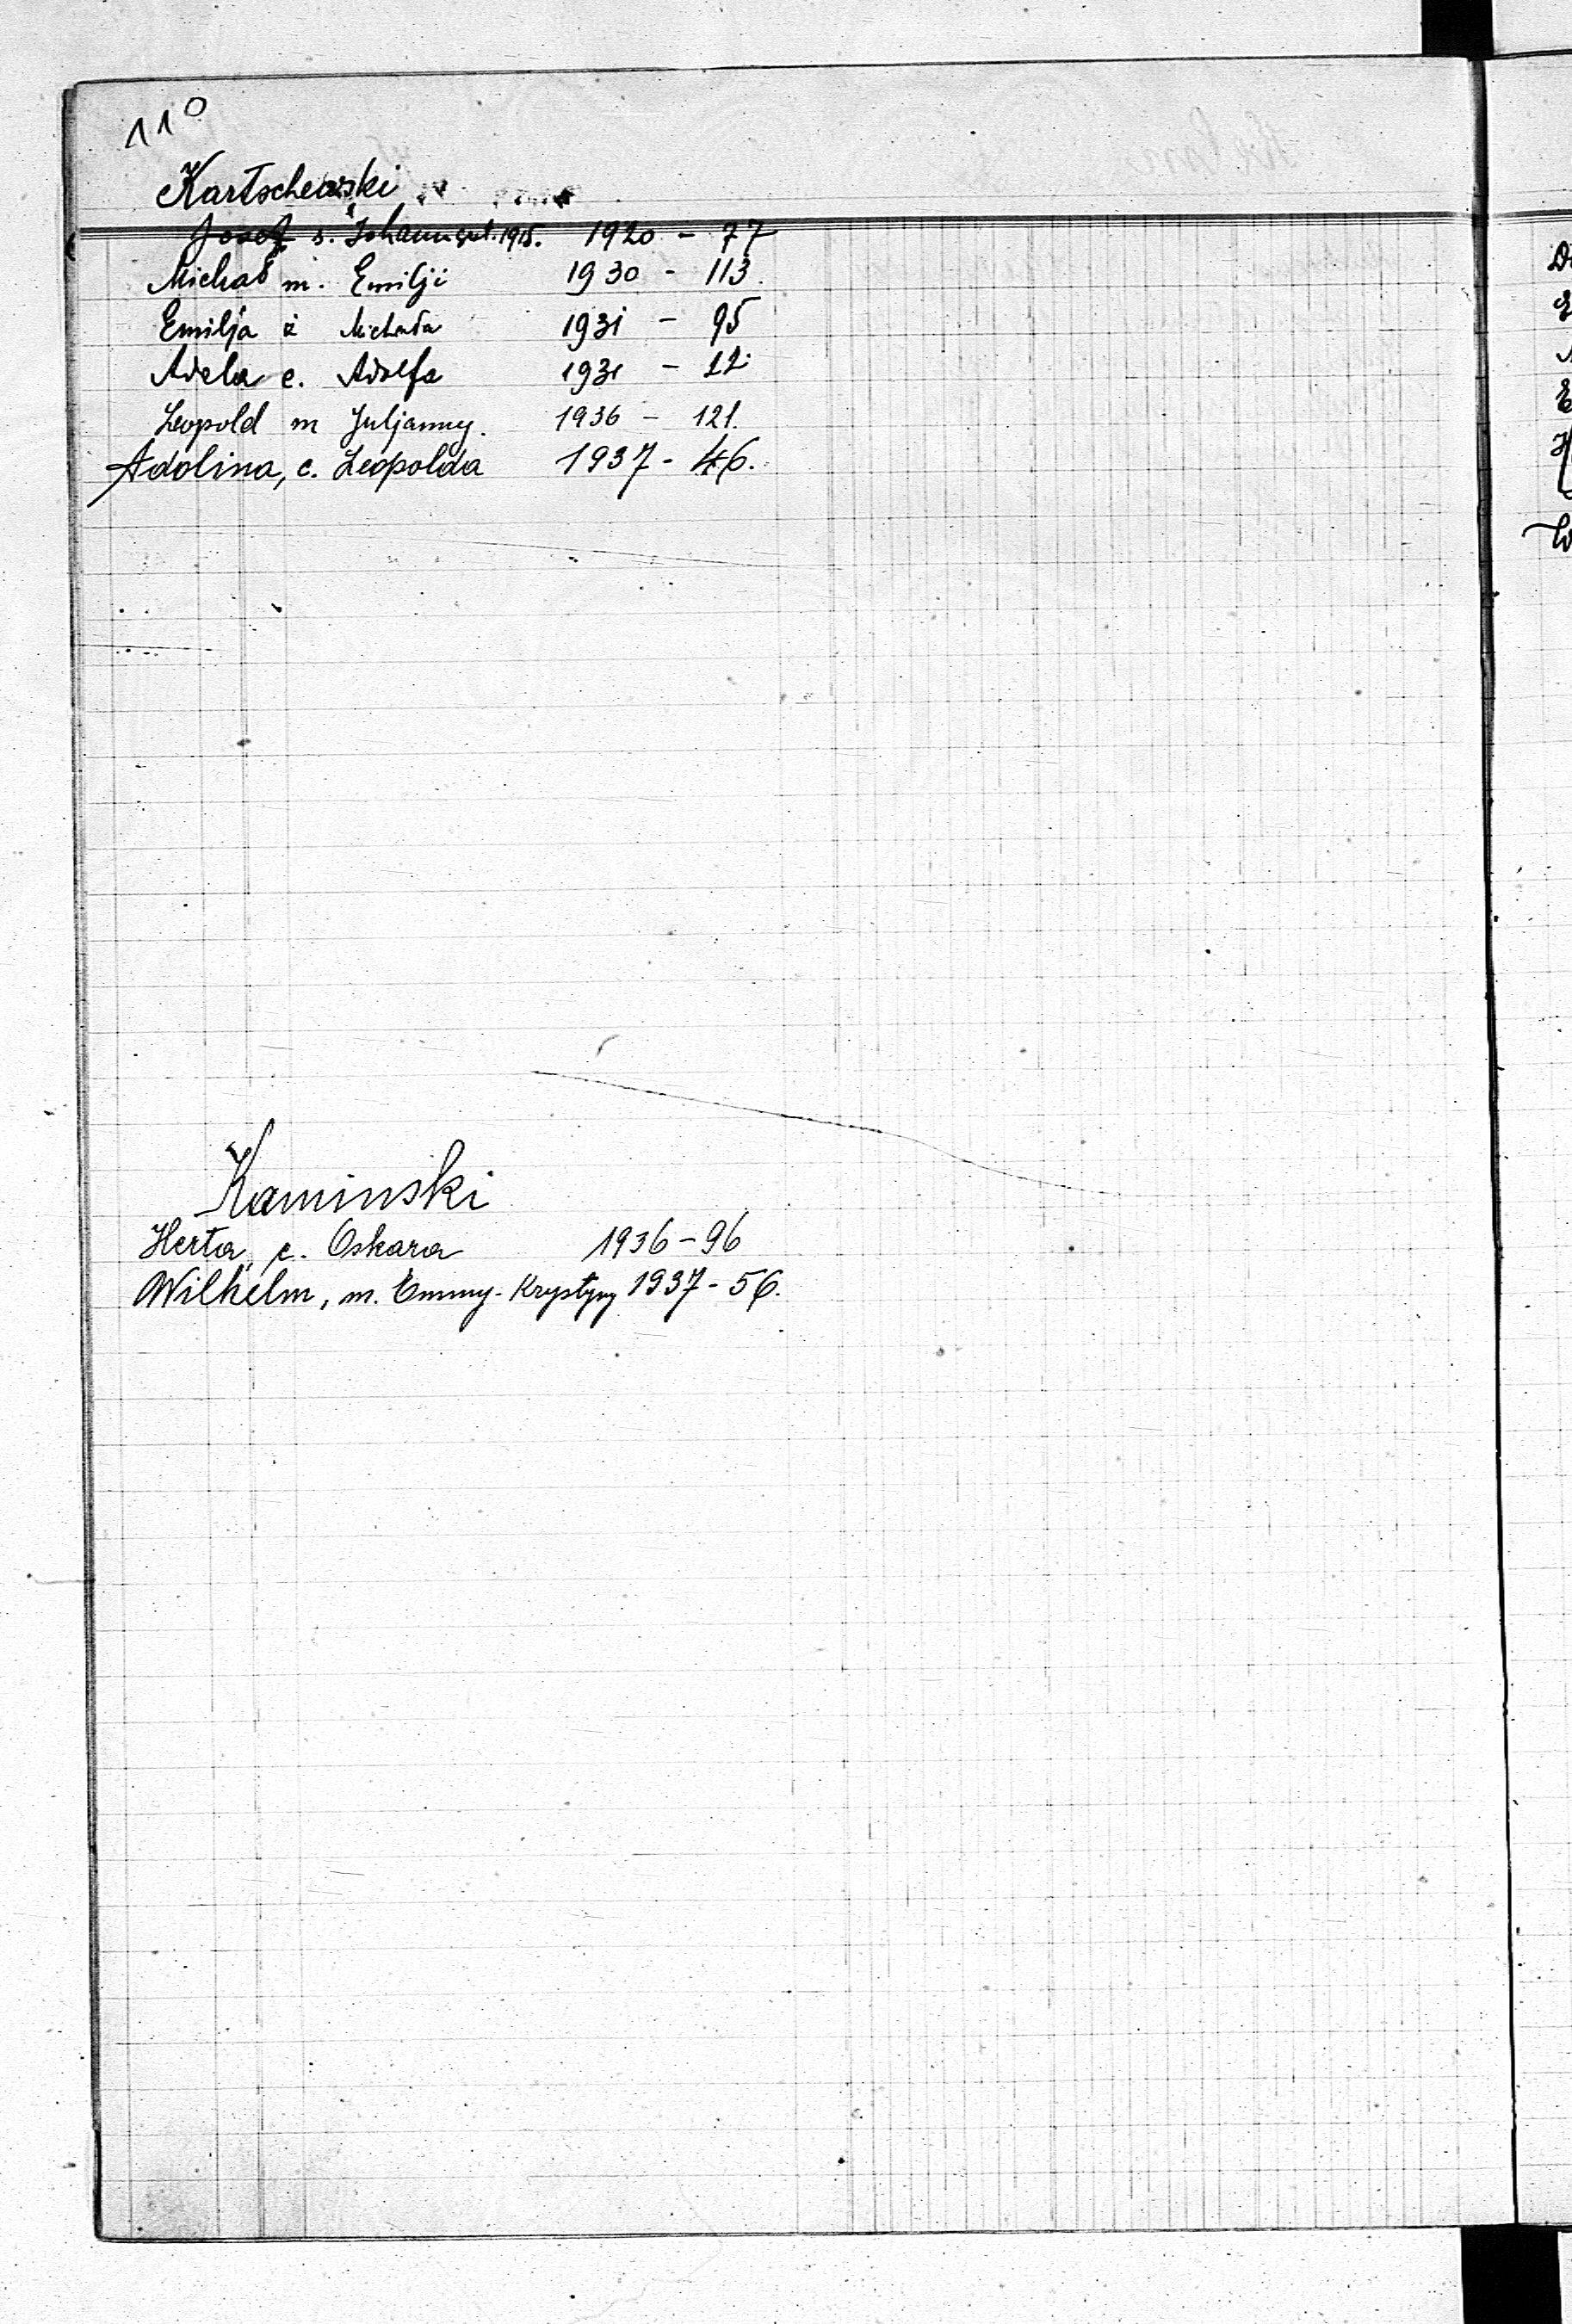 110
Kartschewski
Josef s. Johann geb. 1915. 1920 - 77
Michał m. Emilji 1930 - 113.
Emilja ż Michała 1931 - 95
Adela c. Adolfa 1931 - 22.
Leopold m Juljanny. 1936 - 121.
Adolina, c. Leopolda 1937 - 46.
Kaminski
Herta, c. Oskara 1936 - 96
Wilhelm, m. Emmy-Krystyny 1937 - 56.